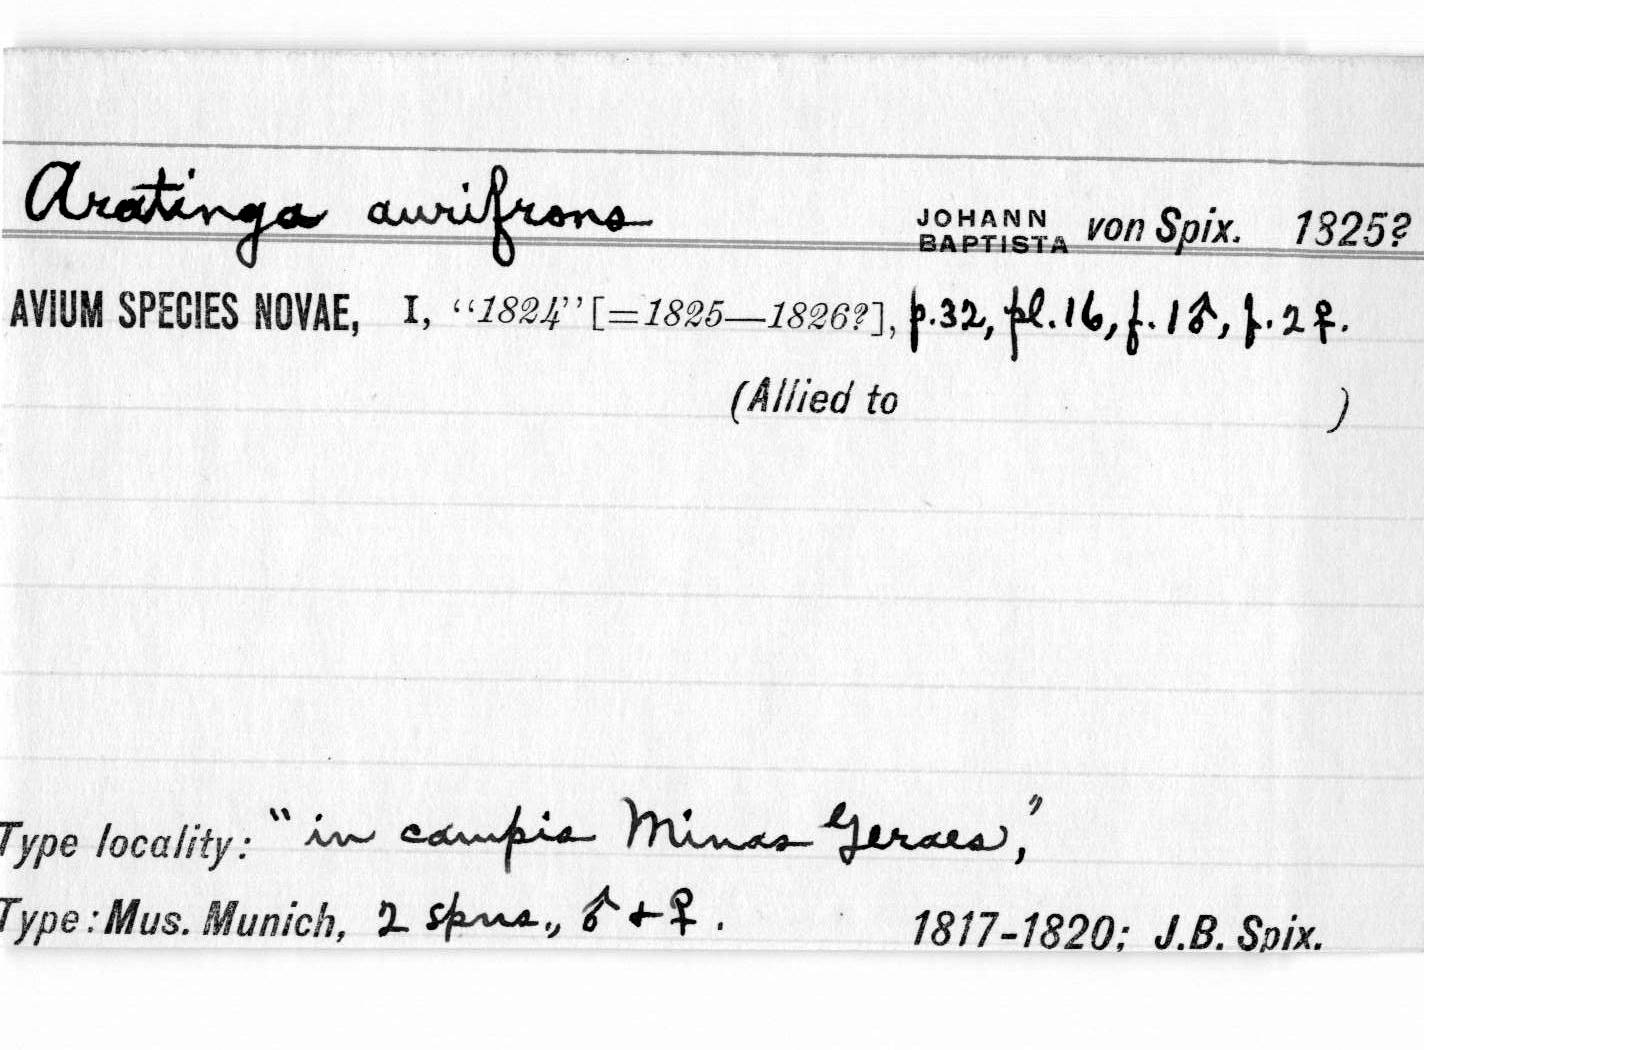 Aratinga aurifrons JOHANN BAPTISTA von Spix. 1825?
AVIUM SPECIES NOVAE, I, “1824” [=1825—1826?], p.32, pl.16, f.1♂, f.2♀.
(Allied to )
Type locality: "in campis Minas Geraes",
Type: Mus. Munich, 2 spns., ♂ + ♀. 1817-1820; J.B. Spix.